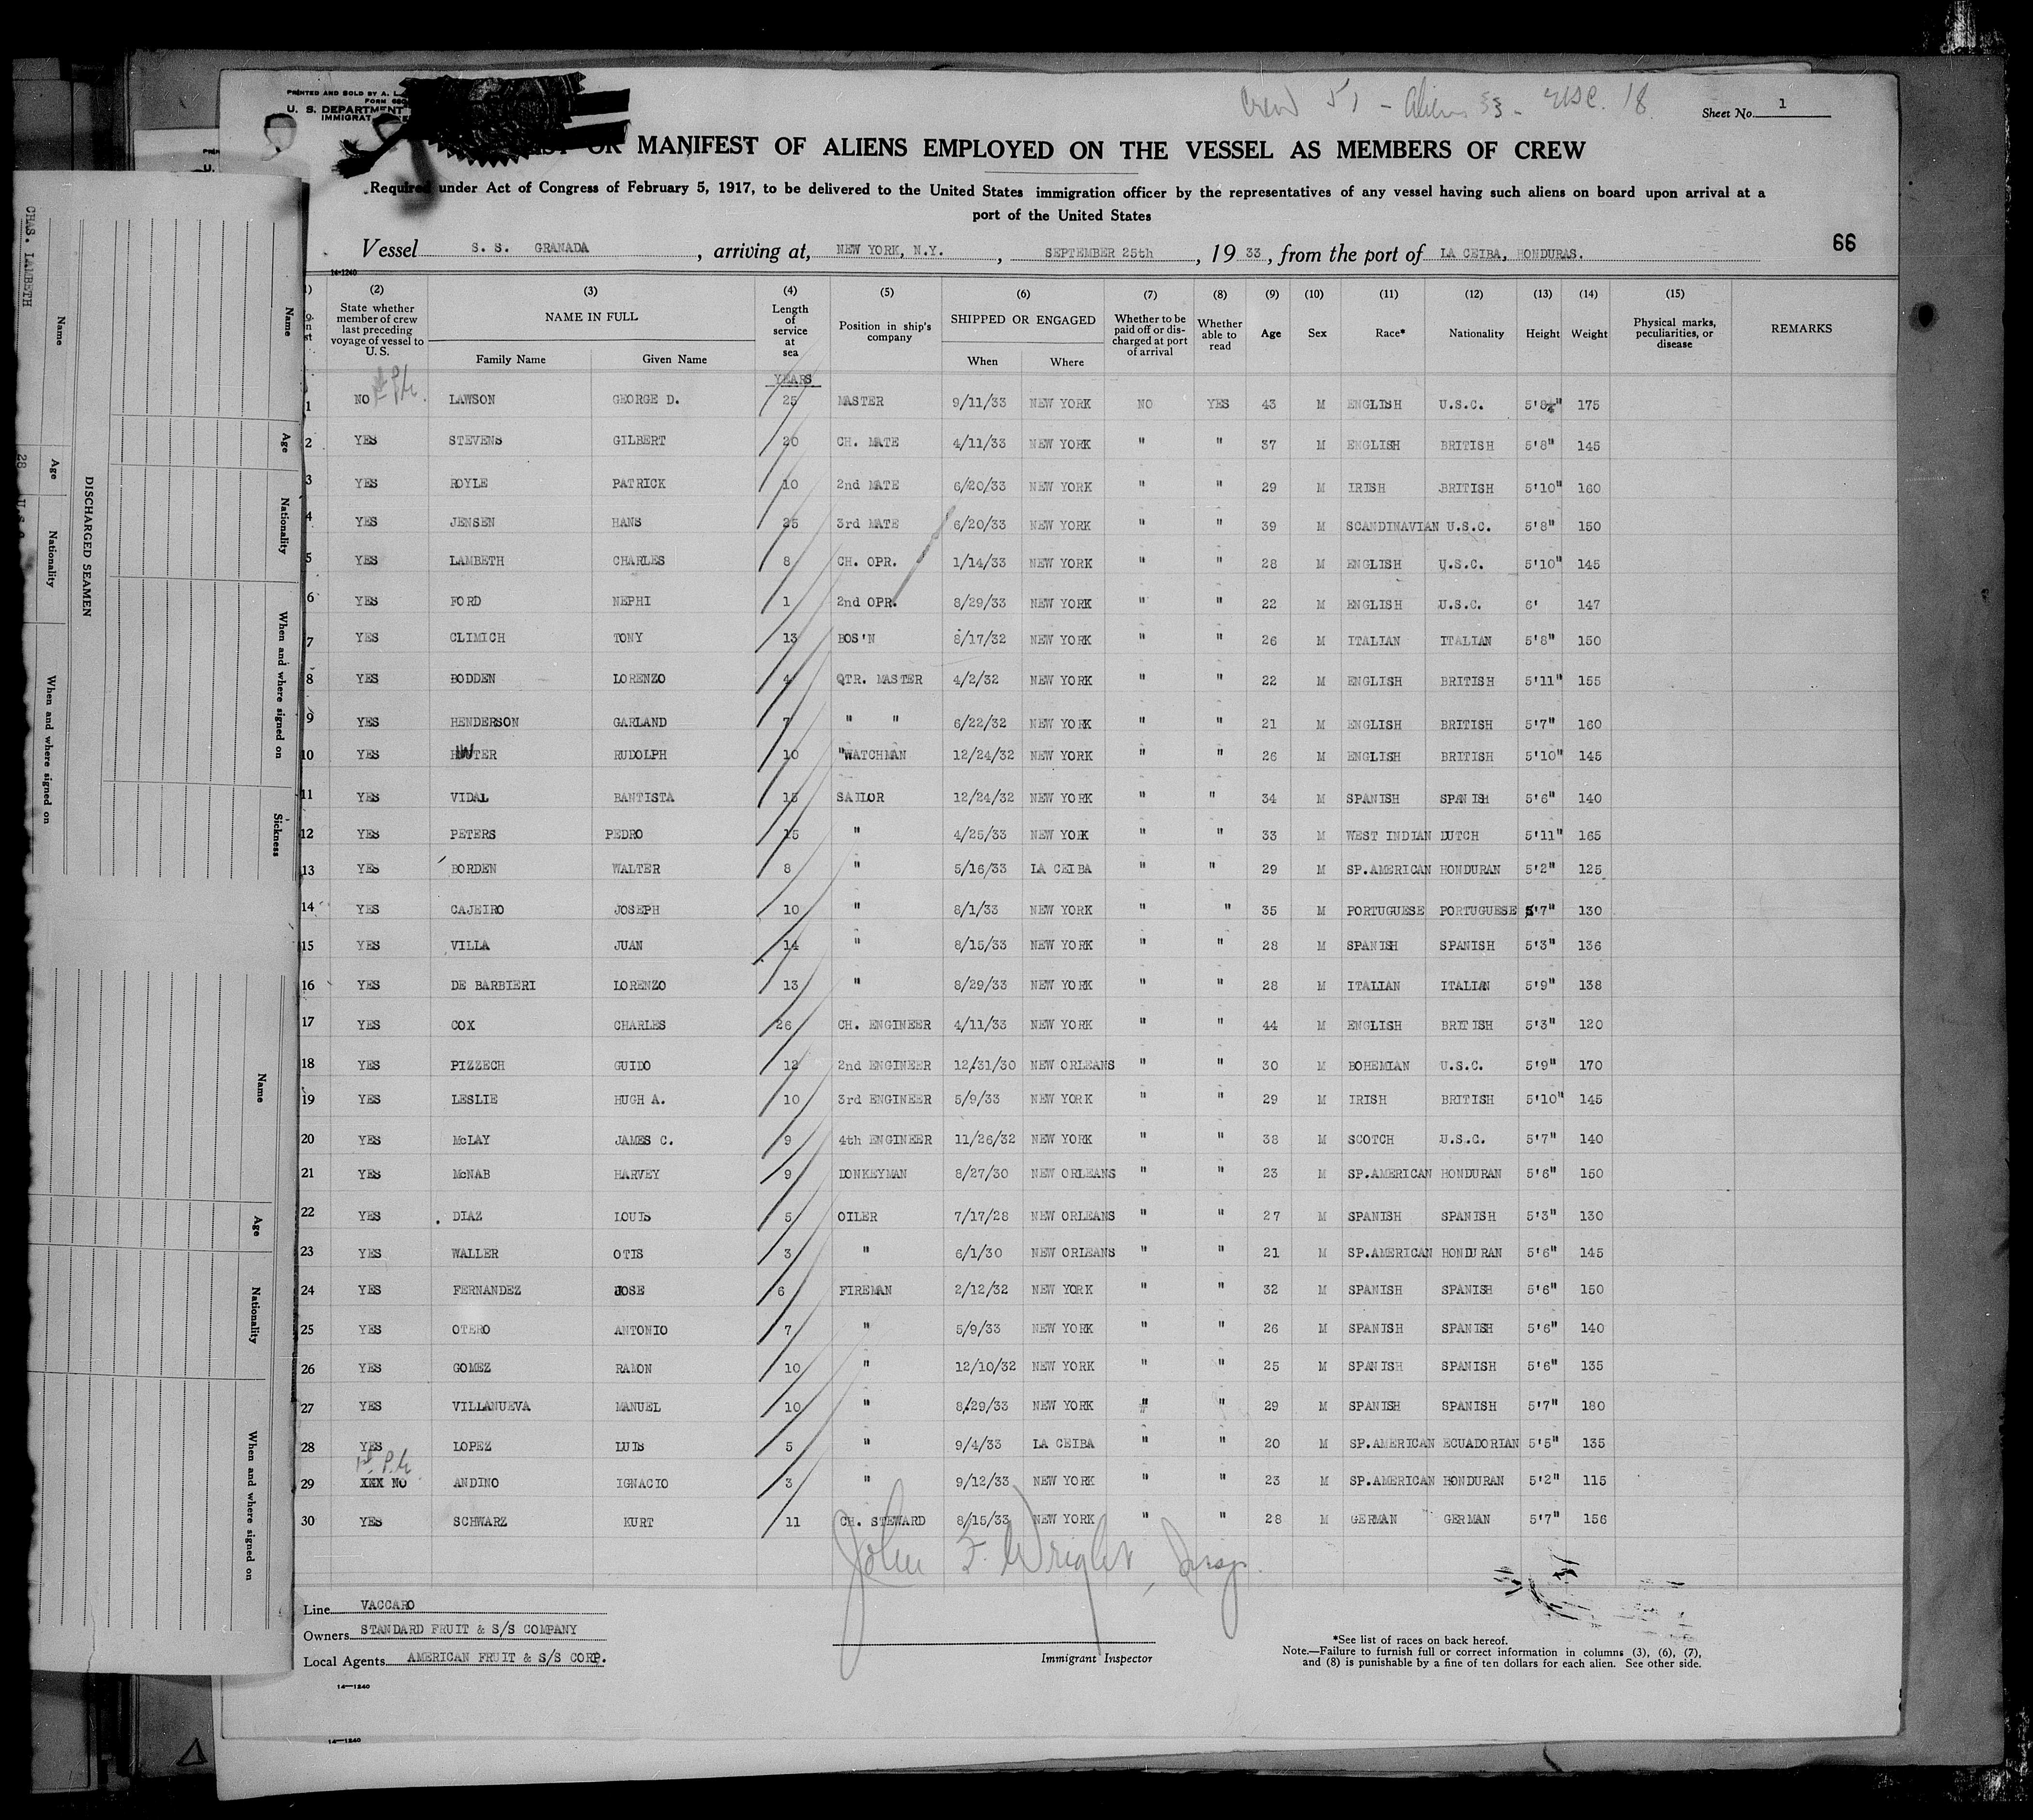 PRINTED AND SOLD BY A. L.
FORM 680
U. S. DEPARTMENT
IMMIGRAT
Crew 51 - Aliens 33 - USC. 18
Sheet No. 1
OR MANIFEST OF ALIENS EMPLOYED ON THE VESSEL AS MEMBERS OF CREW
Required under Act of Congress of February 5, 1917, to be delivered to the United States immigration officer by the representatives of any vessel having such aliens on board upon arrival at a
port of the United States
66
Vessel S. S. GRANADA, arriving at, NEW YORK, N.Y., SEPTEMBER 25th, 1933, from the port of LA CEIBA, HONDURAS.
14-1240
(2) (3) (4) (5) (6) (7) (8) (9) (10) (11) (12) (13) (14) (15)
State whether member of crew last preceding voyage of vessel to U. S. NAME IN FULL Family Name Given Name Length of service at sea Position in ship's company SHIPPED OR ENGAGED When Where Whether to be paid off or discharged at port of arrival Whether able to read Age Sex Race* Nationality Height Weight Physical marks, peculiarities, or disease REMARKS
YEARS
1 NO LAWSON GEORGE D. 25 MASTER 9/11/33 NEW YORK NO YES 43 M ENGLISH U.S.C. 5'8½" 175
2 YES STEVENS GILBERT 20 CH. MATE 4/11/33 NEW YORK " " 37 M ENGLISH BRITISH 5'8" 145
3 YES ROYLE PATRICK 10 2nd MATE 6/20/33 NEW YORK " " 29 M IRISH BRITISH 5'10" 160
4 YES JENSEN HANS 25 3rd MATE 6/20/33 NEW YORK " " 39 M SCANDINAVIAN U.S.C. 5'8" 150
5 YES LAMBETH CHARLES 8 CH. OPR. 1/14/33 NEW YORK " " 28 M ENGLISH U.S.C. 5'10" 145
6 YES FORD NEPHI 1 2nd OPR. 8/29/33 NEW YORK " " 22 M ENGLISH U.S.C. 6' 147
7 YES CLIMICH TONY 13 BOS'N 8/17/32 NEW YORK " " 26 M ITALIAN ITALIAN 5'8" 150
8 YES BODDEN LORENZO 4 QTR. MASTER 4/2/32 NEW YORK " " 22 M ENGLISH BRITISH 5'11" 155
9 YES HENDERSON GARLAND 7 " " 6/22/32 NEW YORK " " 21 M ENGLISH BRITISH 5'7" 160
10 YES RUDOLPH 10 "WATCHMAN 12/24/32 NEW YORK " " 26 M ENGLISH BRITISH 5'10" 145
11 YES VIDAL BANTISTA 15 SAILOR 12/24/32 NEW YORK " " 34 M SPANISH SPANISH 5'6" 140
12 YES PETERS PEDRO 15 " 4/25/33 NEW YORK " " 33 M WEST INDIAN DUTCH 5'11" 165
13 YES BORDEN WALTER 8 " 5/16/33 LA CEIBA " " 29 M SP.AMERICAN HONDURAN 5'2" 125
14 YES CAJEIRO JOSEPH 10 " 8/1/33 NEW YORK " 35 M PORTUGUESE PORTUGUESE 5'7" 130
15 YES VILLA JUAN 14 " 8/15/33 NEW YORK " " 28 M SPANISH SPANISH 5'3" 136
16 YES DE BARBIERI LORENZO 13 " 8/29/33 NEW YORK " " 28 M ITALIAN ITALIAN 5'9" 138
17 YES COX CHARLES 26 CH. ENGINEER 4/11/33 NEW YORK " " 44 M ENGLISH BRITISH 5'3" 120
18 YES PIZZECH GUIDO 12 2nd ENGINEER 12/31/30 NEW ORLEANS " " 30 M BOHEMIAN U.S.C. 5'9" 170
19 YES LESLIE HUGH A. 10 3rd ENGINEER 5/9/33 NEW YORK " " 29 M IRISH BRITISH 5'10" 145
20 YES McLAY JAMES C. 9 4th ENGINEER 11/26/32 NEW YORK " " 38 M SCOTCH U.S.C. 5'7" 140
21 YES McNAB HARVEY 9 DONKEYMAN 8/27/30 NEW ORLEANS " " 23 M SP.AMERICAN HONDURAN 5'6" 150
22 YES DIAZ LOUIS 5 OILER 7/17/28 NEW ORLEANS " " 27 M SPANISH SPANISH 5'3" 130
23 YES WALLER OTIS 3 " 6/1/30 NEW ORLEANS " " 21 M SP.AMERICAN HONDURAN 5'6" 145
24 YES FERNANDEZ JOSE 6 FIREMAN 2/12/32 NEW YORK " " 32 M SPANISH SPANISH 5'6" 150
25 YES OTERO ANTONIO 7 " 5/9/33 NEW YORK " " 26 M SPANISH SPANISH 5'6" 140
26 YES GOMEZ RAMON 10 " 12/10/32 NEW YORK " " 25 M SPANISH SPANISH 5'6" 135
27 YES VILLANUEVA MANUEL 10 " 8/29/33 NEW YORK " " 29 M SPANISH SPANISH 5'7" 180
28 YES LOPEZ LUIS 5 " 9/4/33 LA CEIBA " " 20 M SP.AMERICAN ECUADORIAN 5'5" 135
29 XXX NO ANDINO IGNACIO 3 " 9/12/33 NEW YORK " " 23 M SP.AMERICAN HONDURAN 5'2" 115
30 YES SCHWARZ KURT 11 CH. STEWARD 8/15/33 NEW YORK " " 28 M GERMAN GERMAN 5'7" 156
John F. Wright, Insp.
Line VACCARO
Owners STANDARD FRUIT & S/S COMPANY
Local Agents AMERICAN FRUIT & S/S CORP.
Immigrant Inspector
*See list of races on back hereof.
Note.—Failure to furnish full or correct information in columns (3), (6), (7),
and (8) is punishable by a fine of ten dollars for each alien. See other side.
14—1240
14—1240
CHAS. LAMBETH 28 U.S.C.
Name Age Nationality When and where signed on
DISCHARGED SEAMEN
Name Age Nationality When and where signed on Sickness
Name Age Nationality When and where signed on